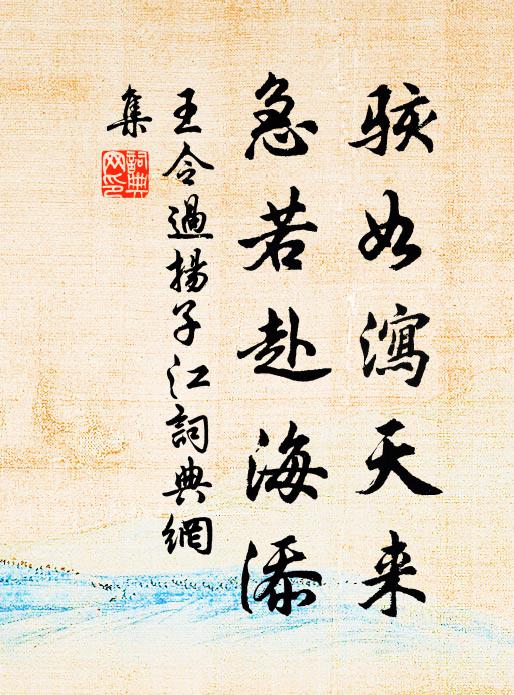 駭如瀉天来
急若赴海添
王令過揚子江詞典網
集
詞典
网印